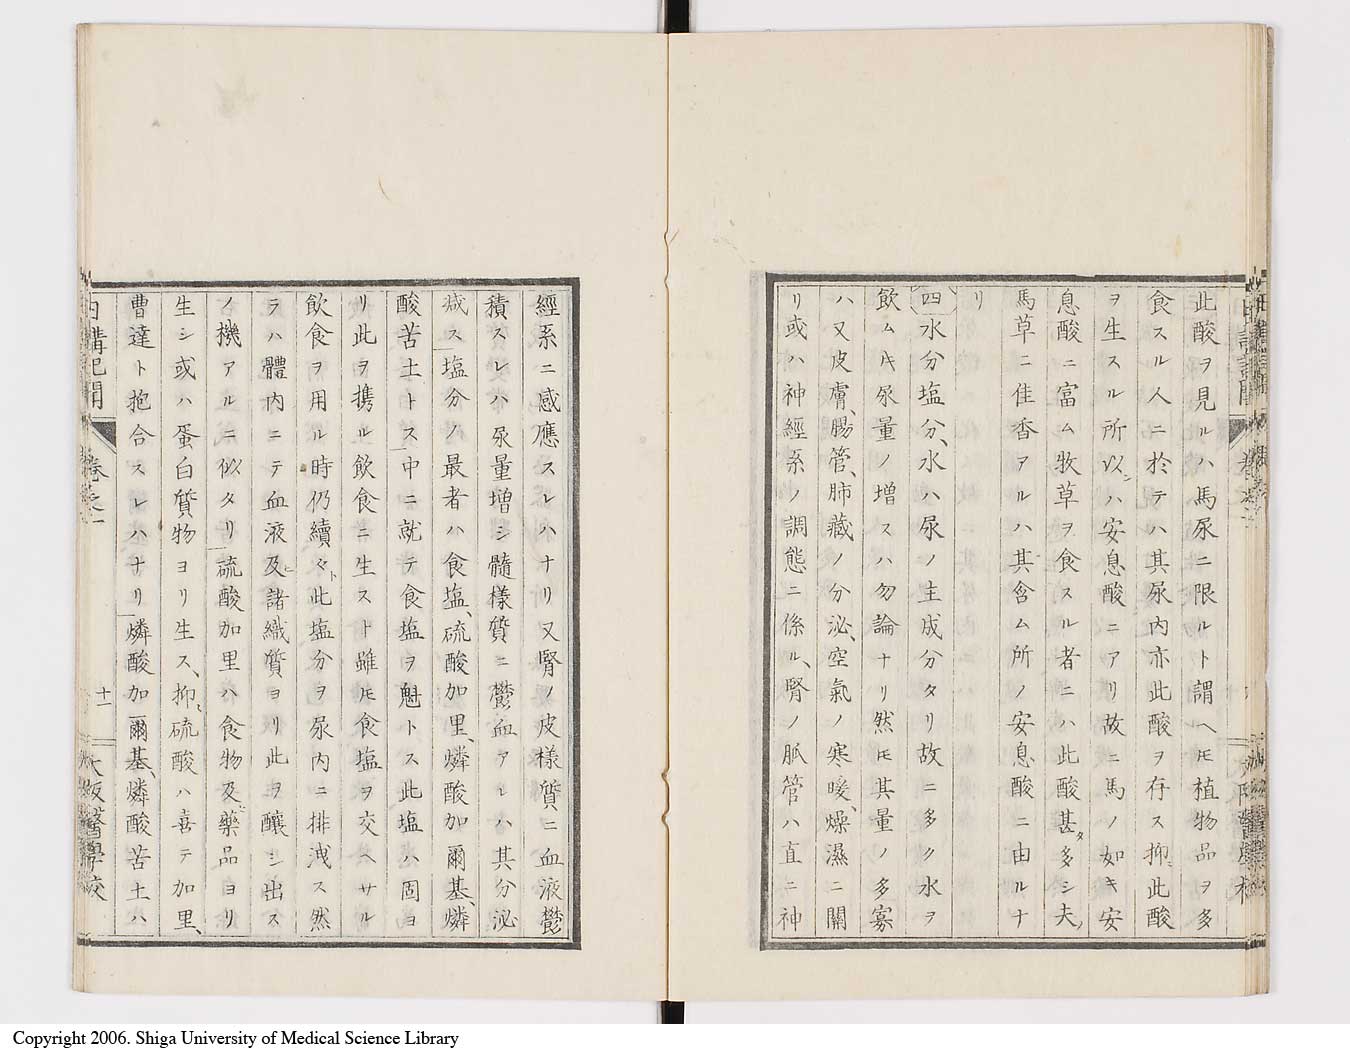 此酸ヲ見ルハ馬尿ニ限ルト謂ヘ𪜈植物品ヲ多
食スル人ニ於テハ其尿内亦此酸ヲ存ス抑ミ此酸
ヲ生スル所以ンハ安息酸ニアリ故ニ馬ノ如キ安
息酸ニ富ム牧草ヲ食スル者ニハ此酸甚タ多シ夫ノ
馬草ニ佳香アルハ其含ム所ノ安息酸ニ由ルナ
リ
四水分塩分、水ハ尿ノ主成分タリ故ニ多ク水ヲ
飲ムキ尿量ノ増スハ勿論ナリ然𪜈其量ノ多寡
ハ又皮膚、腸管、肺藏ノ分泌、空氣ノ寒暖、燥濕ニ關
リ或ハ神經系ノ調態ニ係ル、腎ノ脈管ハ直ニ神
經系ニ感應スレハナリ又腎ノ皮様質ニ血液鬱
積スレハ尿量増シ髓様質ニ鬱血アレハ其分泌
減ス塩分ノ最者ハ食塩、硫酸加里、燐酸加爾基、燐
酸苦土トス中ニ就テ食塩ヲ魁トス此塩ハ固ヨ
リ此ヲ携ル飲食ニ生スト雖𪜈食塩ヲ交ヘサル
飲食ヲ用ル時仍續々ト此塩分ヲ尿内ニ排洩ス然
ラハ體内ニテ血液及ヒ諸織質ヨリ此ヲ釀シ出ス
ノ機アルニ似タリ硫酸加里ハ食物及ヒ藥品ヨリ
生シ或ハ蛋白質物ヨリ生ス、抑ミ硫酸ハ喜テ加里、
曹達ト抱合スレハナリ燐酸加爾基、燐酸苦土ハ
日講記聞 卷之一 十一 大阪醫學校
Copyright 2006. Shiga University of Medical Science Library